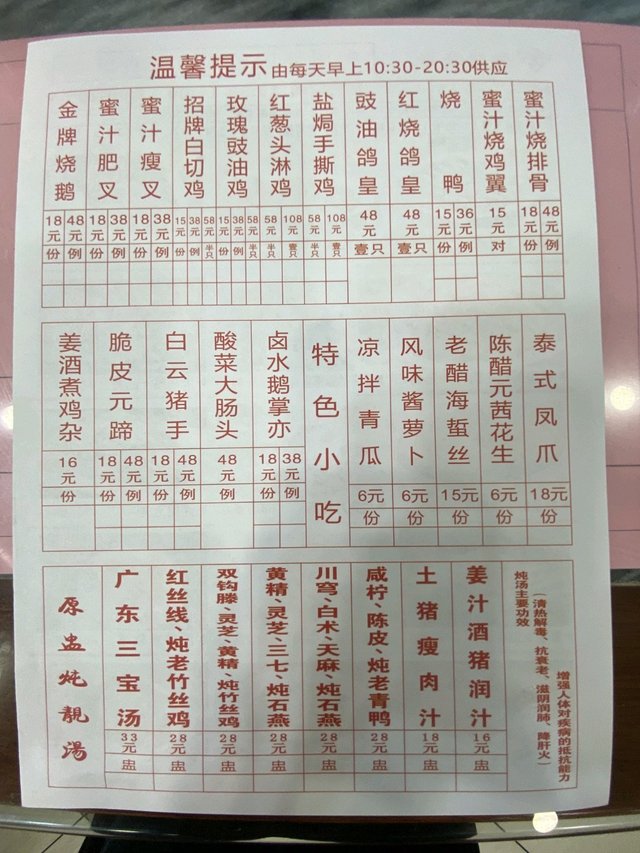 温馨提示由每天早上10:30-20:30供应
金牌烧鹅 蜜汁肥叉 蜜汁瘦叉 招牌白切鸡 玫瑰豉油鸡 红葱头淋鸡 盐焗手撕鸡 豉油鸽皇 红烧鸽皇 烧鸭 蜜汁烧鸡翼 蜜汁烧排骨
18元 48元 18元 38元 18元 38元 15元 38元 58元 15元 38元 58元 58元 108元 58元 108元 48元 48元 15元 36元 15元 18元 48元
份 例 份 例 份 例 份 例 半只 份 例 半只 半只 壹只 半只 壹只 壹只 壹只 份 例 对 份 例
姜酒煮鸡杂 脆皮元蹄 白云猪手 酸菜大肠头 卤水鹅掌亦 特色小吃 凉拌青瓜 风味酱萝卜 老醋海蜇丝 陈醋元茜花生 泰式凤爪
16元 18元 48元 18元 48元 48元 18元 38元 6元 6元 15元 6元 18元
份 份 例 份 例 例 份 例 份 份 份 份 份
原盅炖靓湯 广东三宝汤 红丝线、炖老竹丝鸡 双钩滕、灵芝、黄精、炖竹丝鸡 黄精、灵芝、三七、炖石燕 川穹、白术、天麻、炖石燕 咸柠、陈皮、炖老青鸭 土猪瘦肉汁 姜汁酒猪润汁
33元 28元 28元 28元 28元 28元 18元 16元
盅 盅 盅 盅 盅 盅 盅 盅
炖汤主要功效
（清热解毒、抗衰老、滋阴润肺、降肝火）
增强人体对疾病的抵抗能力